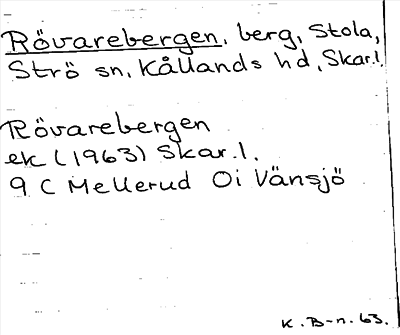 Rövarebergen, berg, Stola,
Strö sn, Kållands hd, Skar.l.
Rövarebergen
ek (1963) Skar.l.
9 C Mellerud Oi Vänsjö
K. B-n. 63.